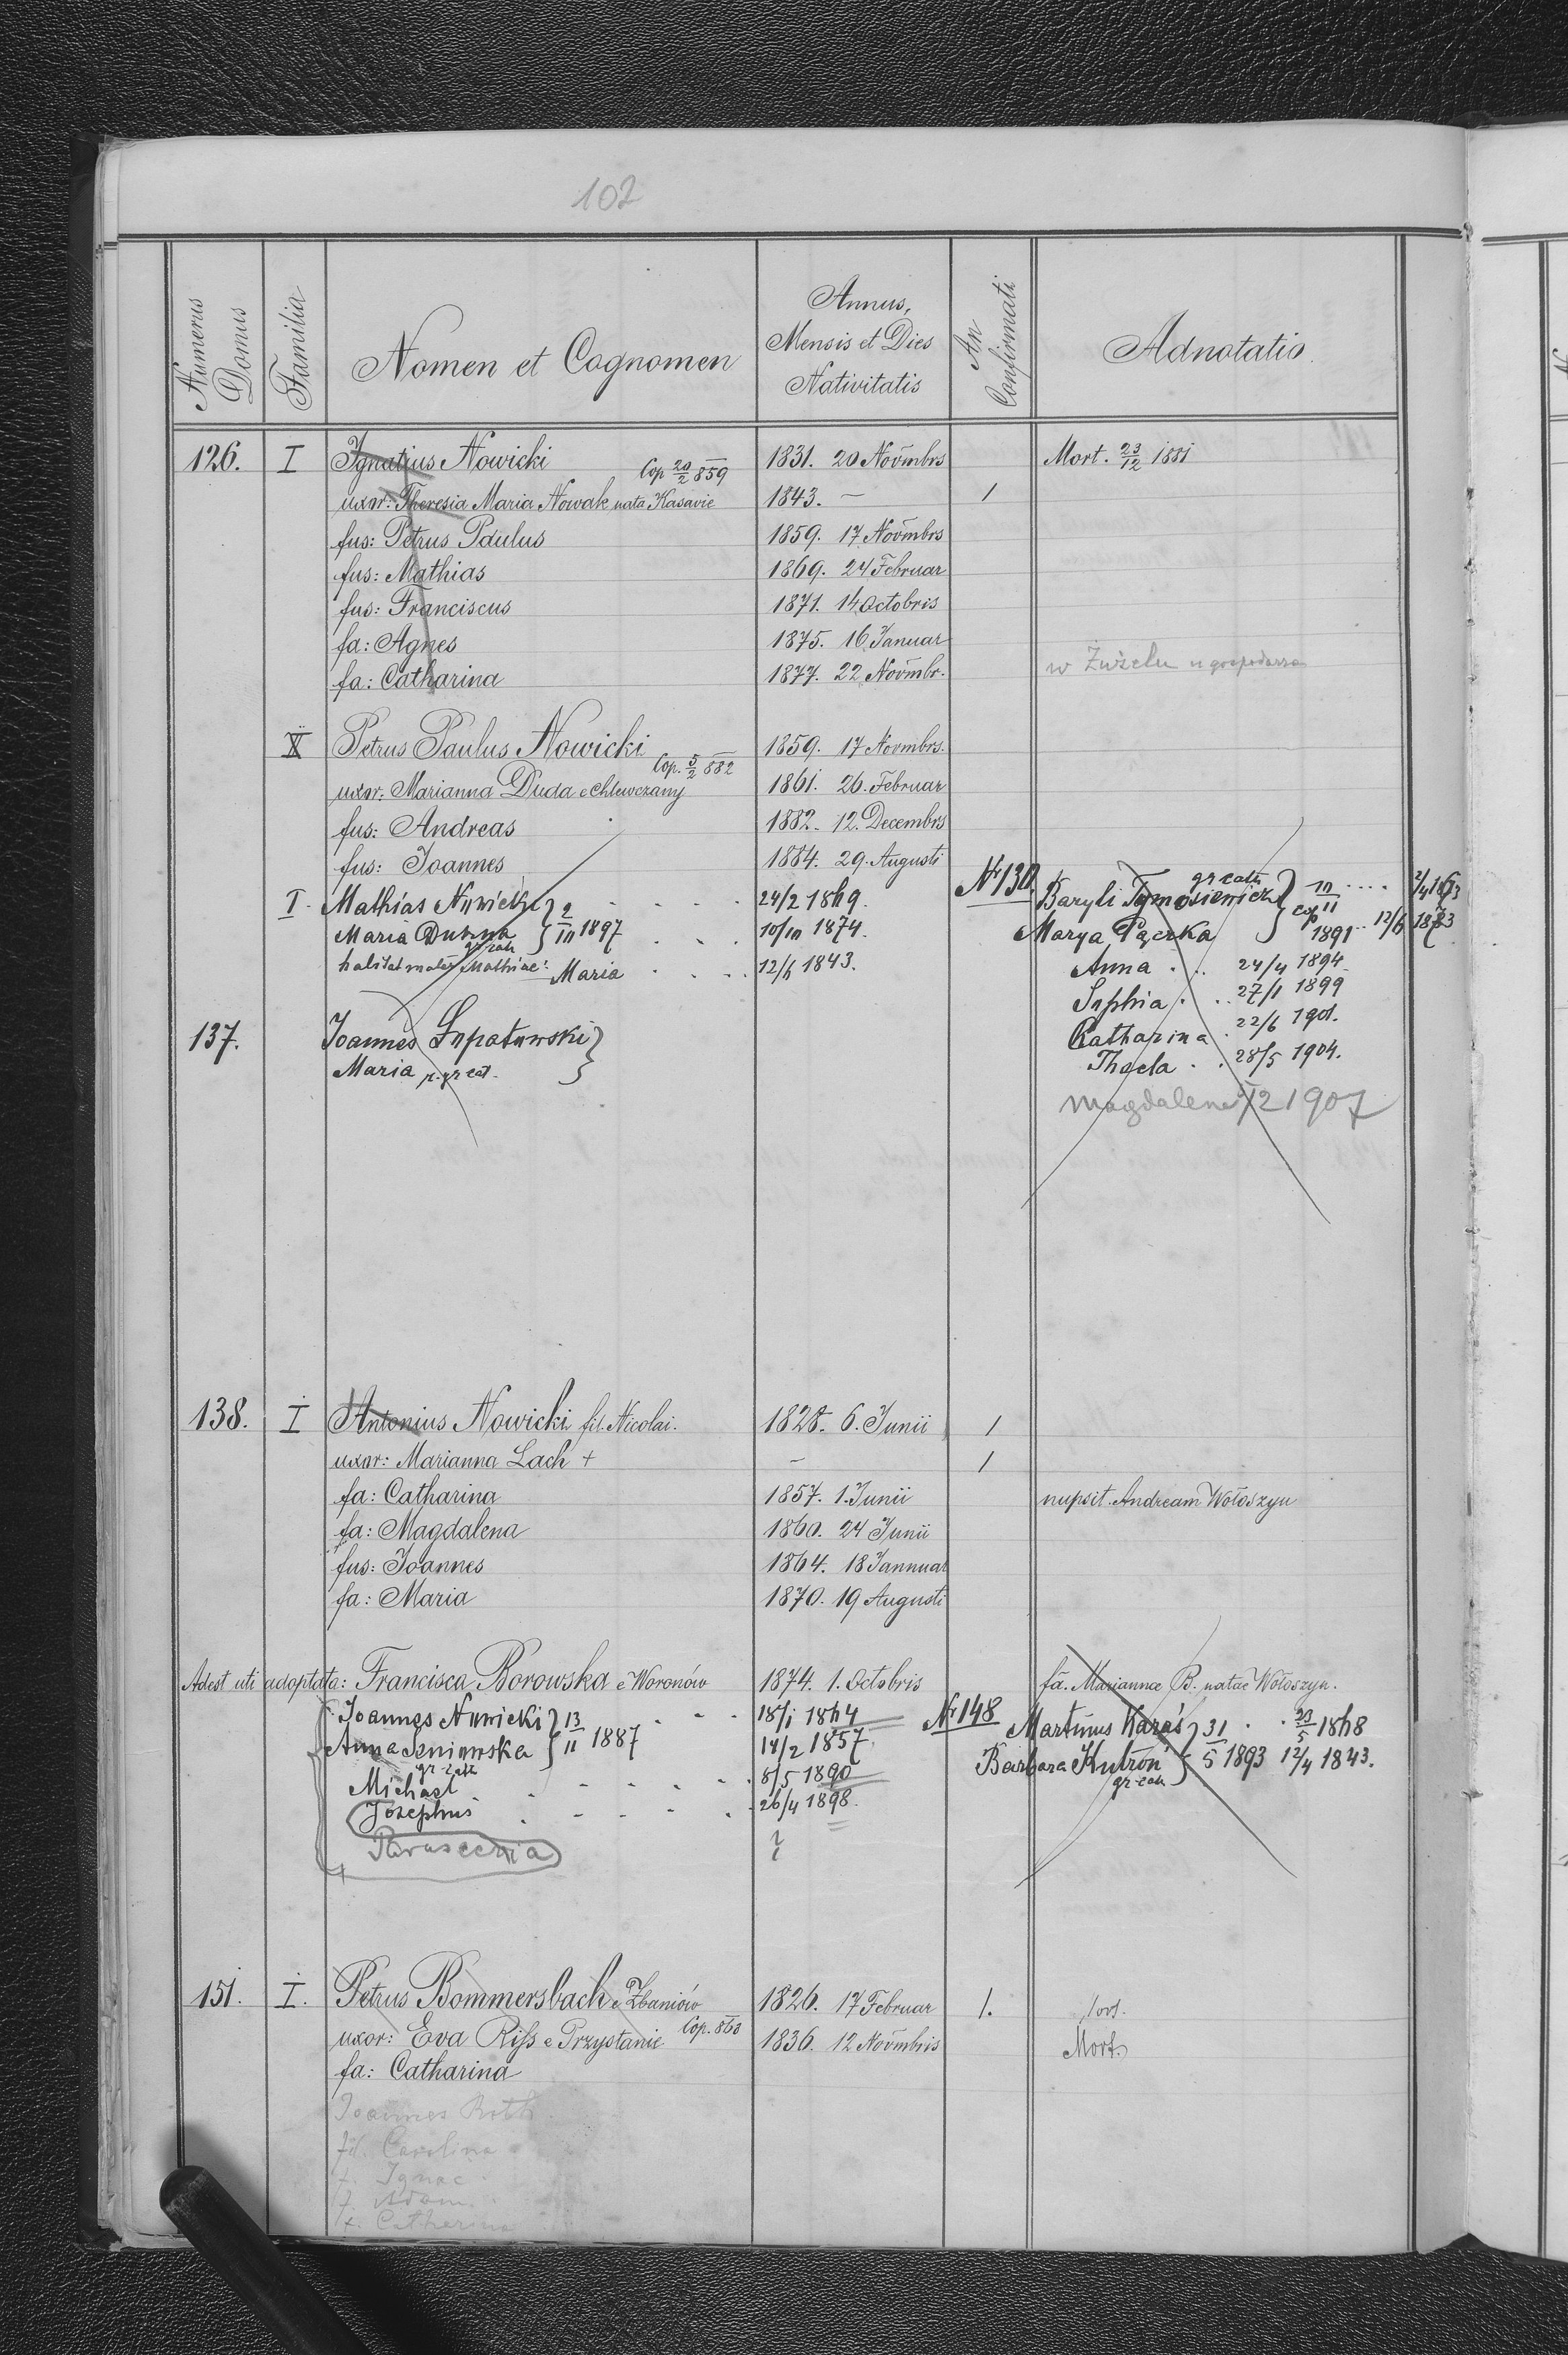 102
Numerus Domus
Familia
Nomen et Cognomen
Annus,
Mensis et Dies
Nativitatis
An Confirmati
Adnotatio
126. I Ignatius Nowicki Cop 20/2 859 1831. 20 Novmbrs Mort. 23/12 1881
uxor: Theresia Maria Nowak nata Kasavic 1843. — 1
fus: Petrus Paulus 1859. 17 Novmbrs
fus: Mathias 1869. 24 Februar
fus: Franciscus 1871. 14 Octobris
fa: Agnes 1875. 16 Januar
fa: Catharina 1877. 22 Novmbr. w Żużelu u gospodarza
II Petrus Paulus Nowicki 1859. 17 Novmbrs.
Cop. 5/2 882
uxor: Marianna Duda e Chlewczany 1861. 26. Februar
fus: Andreas 1882. 12. Decembrs
fus: Joannes 1884. 29. Augusti
I. Mathias Nowicki } 2/III 1897 24/2 1869.
Maria Dubna gr cath 10/III 1874.
habitat mater Mathiae: Maria 12/6 1843.
Nr 130. Baryli Tymosiewicz gr cath } cop III/II 1891 2/4 1863
Marya Pączka 12/6 1873
Anna . . 24/4 1894
Sophia . . 27/1 1899
Catharina . 22/6 1901.
Thecla . . 28/5 1904.
Magdalena 1/2 1907
137. Joannes Łopatowski }
Maria r. gr cat.
138. I Antonius Nowicki fil. Nicolai. 1828. 6. Junii 1
uxor: Marianna Lach + – 1
fa: Catharina 1857. 1. Junii nupsit. Andream Wołoszyn
fa: Magdalena 1860. 24 Junii
fus: Joannes 1864. 18 Jannuar
fa: Maria 1870. 19 Augusti
Adest uti adoptata: Francisca Borowska e Woronów 1874. 1. Octobris fa. Mariannae B. natae Wołoszyn.
Joannes Nowicki } 13/II 1887 18/1 1864
Anna Szniowska gr-cath 14/2 1857
Michael 8/5 1890
Josephus 26/4 1898.
Parascewia ?
Nr 148 Martinus Karaś } 31/5 1893 23/5 1868
Barbara Kutron gr-cath 12/4 1843.
151. I. Petrus Bommersbach e Zbaniów 1826. 17 Februar 1.
Cop. 863
uxor: Eva Riss e Przystanie 1836. 12 Novmbris Mort.
fa: Catharina
Joannes Roth
fil. Carolina
f. Ignac
f. Adam
f. Catharina